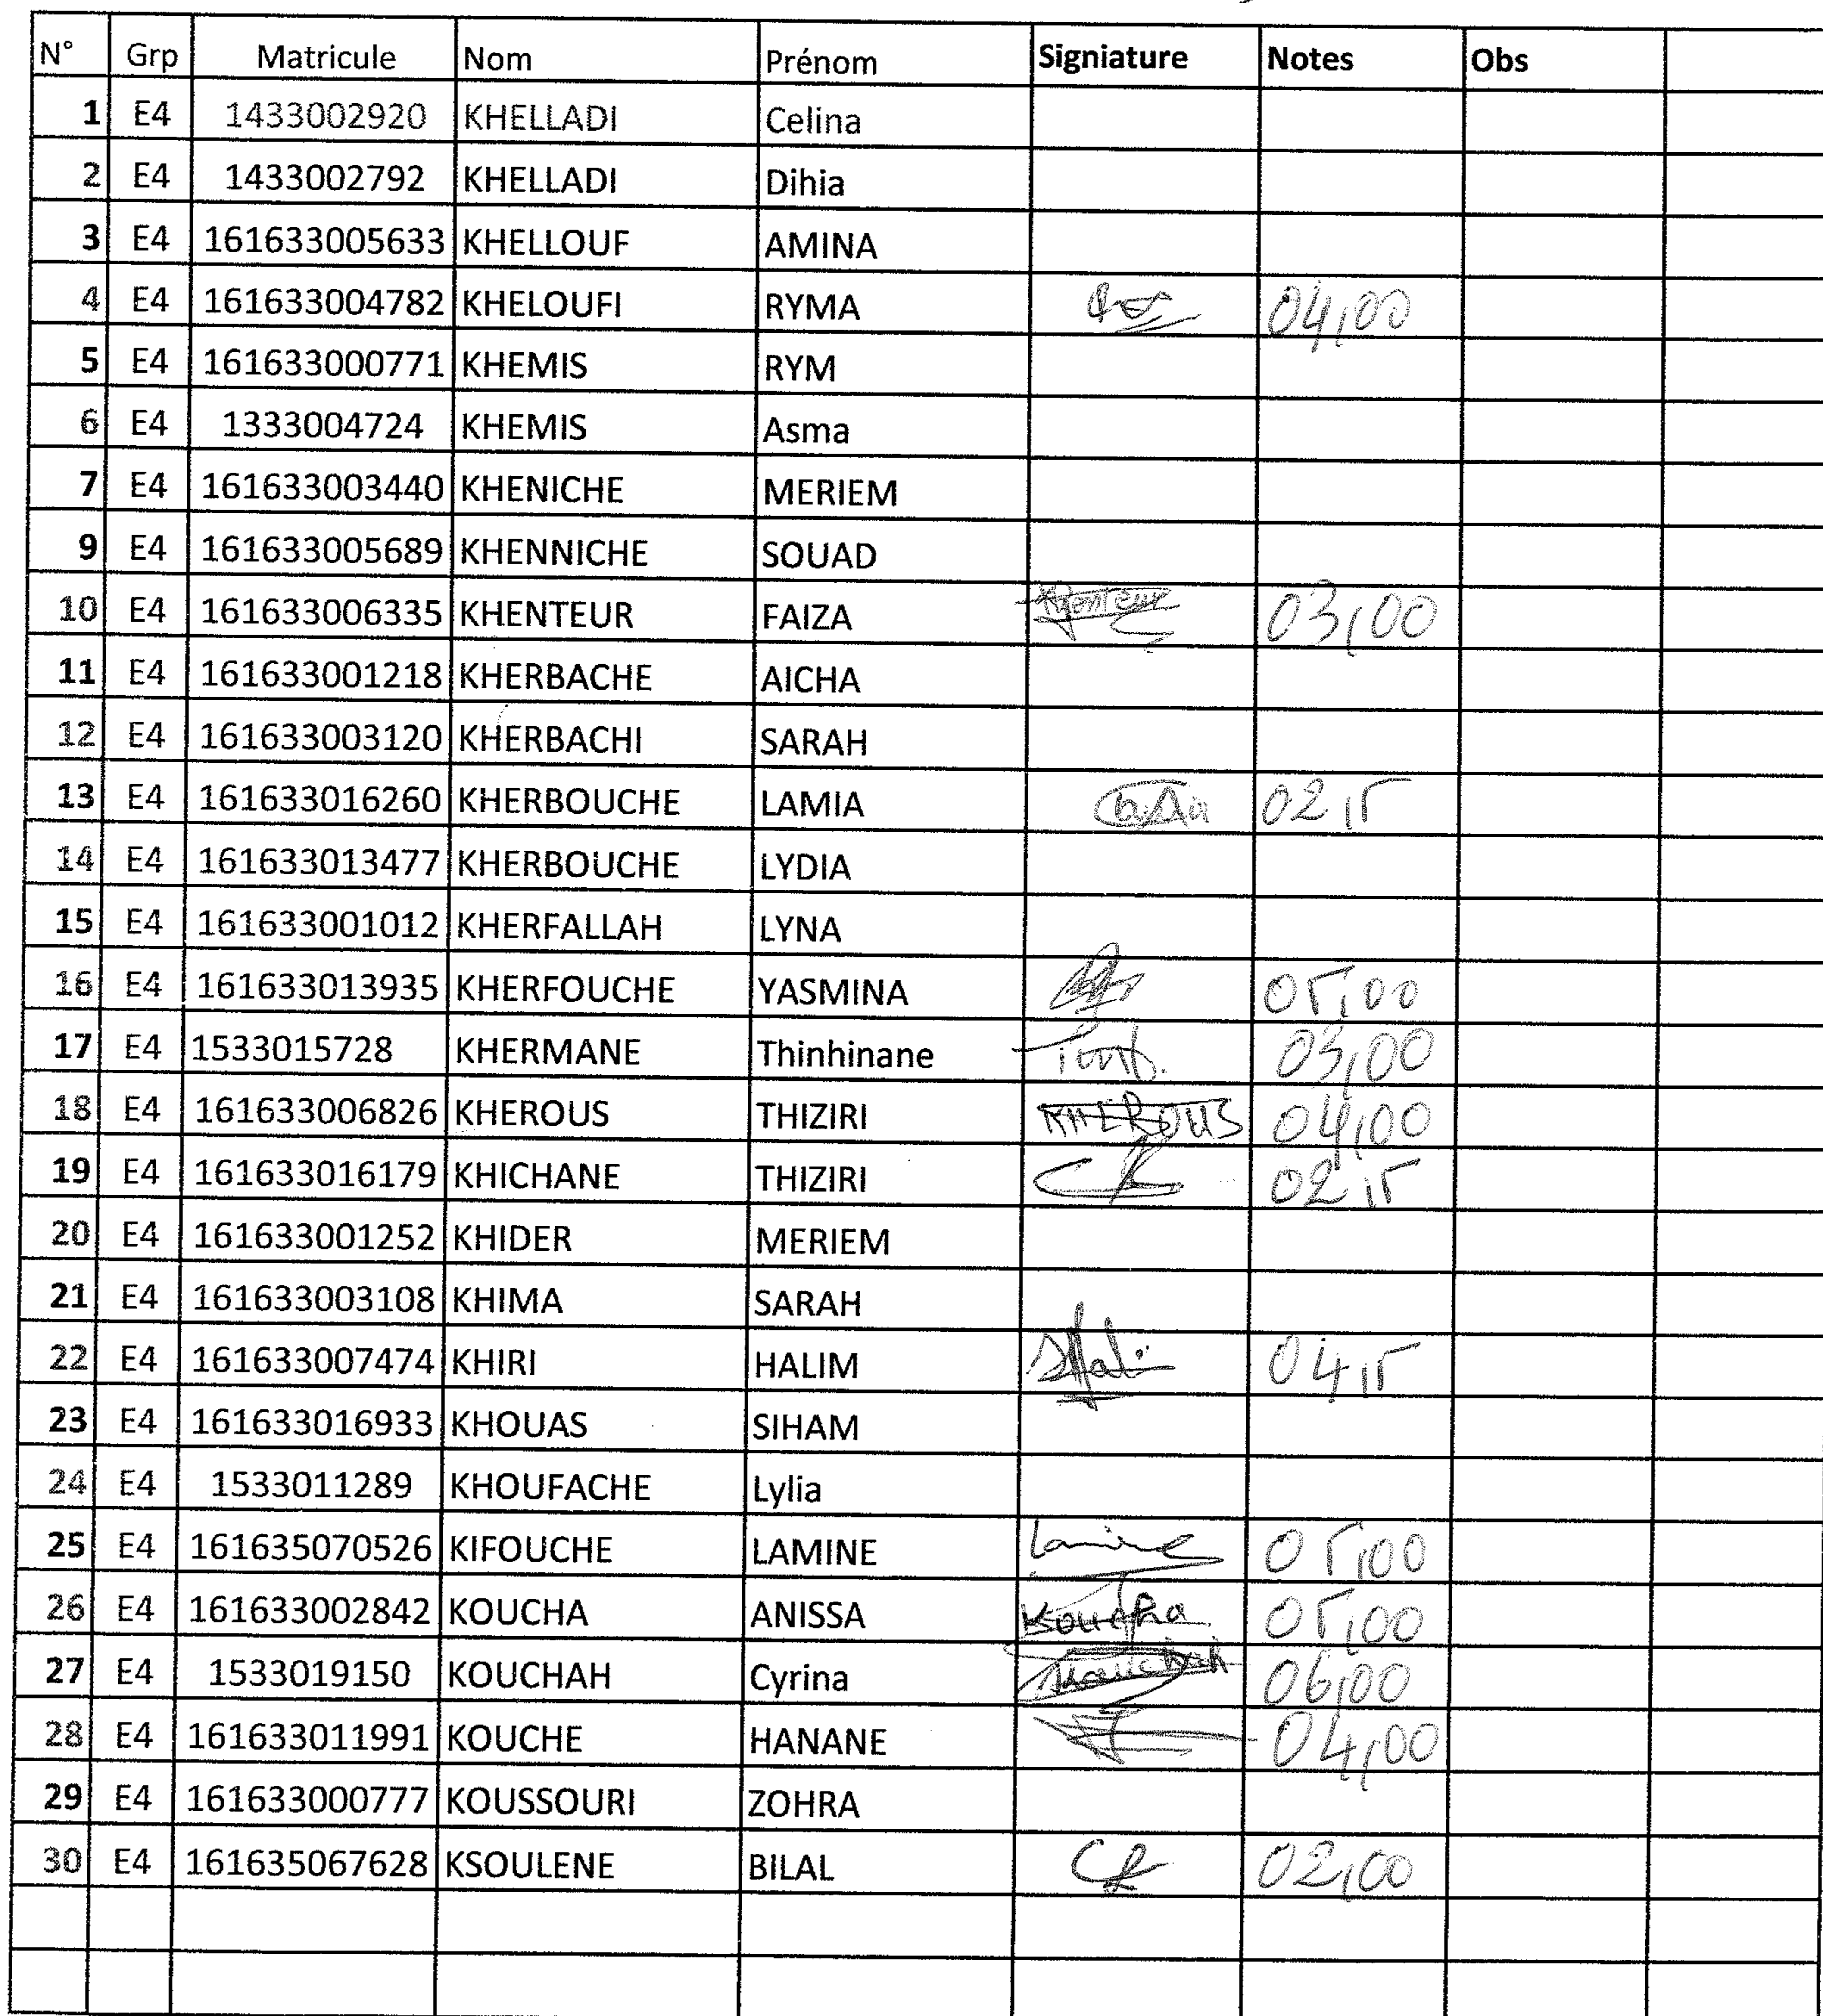 N° Grp Matricule Nom Prénom Signiature Notes Obs
1 E4 1433002920 KHELLADI Celina
2 E4 1433002792 KHELLADI Dihia
3 E4 161633005633 KHELLOUF AMINA
4 E4 161633004782 KHELOUFI RYMA 04,00
5 E4 161633000771 KHEMIS RYM
6 E4 1333004724 KHEMIS Asma
7 E4 161633003440 KHENICHE MERIEM
9 E4 161633005689 KHENNICHE SOUAD
10 E4 161633006335 KHENTEUR FAIZA Khenteur 03,00
11 E4 161633001218 KHERBACHE AICHA
12 E4 161633003120 KHERBACHI SARAH
13 E4 161633016260 KHERBOUCHE LAMIA 02,5
14 E4 161633013477 KHERBOUCHE LYDIA
15 E4 161633001012 KHERFALLAH LYNA
16 E4 161633013935 KHERFOUCHE YASMINA 05,00
17 E4 1533015728 KHERMANE Thinhinane 03,00
18 E4 161633006826 KHEROUS THIZIRI KHEROUS 04,00
19 E4 161633016179 KHICHANE THIZIRI 02,5
20 E4 161633001252 KHIDER MERIEM
21 E4 161633003108 KHIMA SARAH
22 E4 161633007474 KHIRI HALIM 04,5
23 E4 161633016933 KHOUAS SIHAM
24 E4 1533011289 KHOUFACHE Lylia
25 E4 161635070526 KIFOUCHE LAMINE Lamine 05,00
26 E4 161633002842 KOUCHA ANISSA Koucha 05,00
27 E4 1533019150 KOUCHAH Cyrina Kouchah 06,00
28 E4 161633011991 KOUCHE HANANE 04,00
29 E4 161633000777 KOUSSOURI ZOHRA
30 E4 161635067628 KSOULENE BILAL 02,00